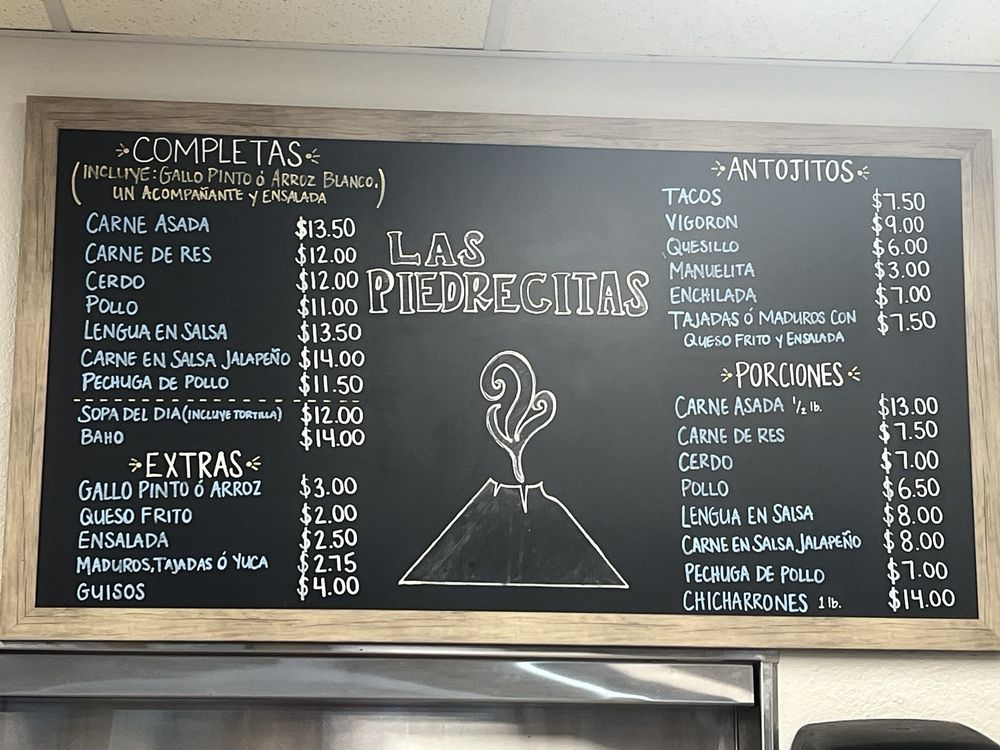 COMPLETAS
(INCLUYE: GALLO PINTO ó ARROZ BLANCO,
UN ACOMPAÑANTE Y ENSALADA)
CARNE ASADA $13.50
CARNE DE RES $12.00
CERDO $12.00
POLLO $11.00
LENGUA EN SALSA $13.50
CARNE EN SALSA JALAPEÑO $14.00
PECHUGA DE POLLO $11.50
SOPA DEL DIA (INCLUYE TORTILLA) $12.00
BAHO $14.00
EXTRAS
GALLO PINTO Ó ARROZ $3.00
QUESO FRITO $2.00
ENSALADA $2.50
MADUROS, TAJADAS Ó YUCA $2.75
GUISOS $4.00
LAS
PIEDRECITAS
ANTOJITOS
TACOS $7.50
VIGORON $9.00
QUESILLO $6.00
MANUELITA $3.00
ENCHILADA $7.00
TAJADAS Ó MADUROS CON $7.50
QUESO FRITO Y ENSALADA
PORCIONES
CARNE ASADA 1/2 lb. $13.00
CARNE DE RES $7.50
CERDO $7.00
POLLO $6.50
LENGUA EN SALSA $8.00
CARNE EN SALSA JALAPEÑO $8.00
PECHUGA DE POLLO $7.00
CHICHARRONES 1 lb. $14.00